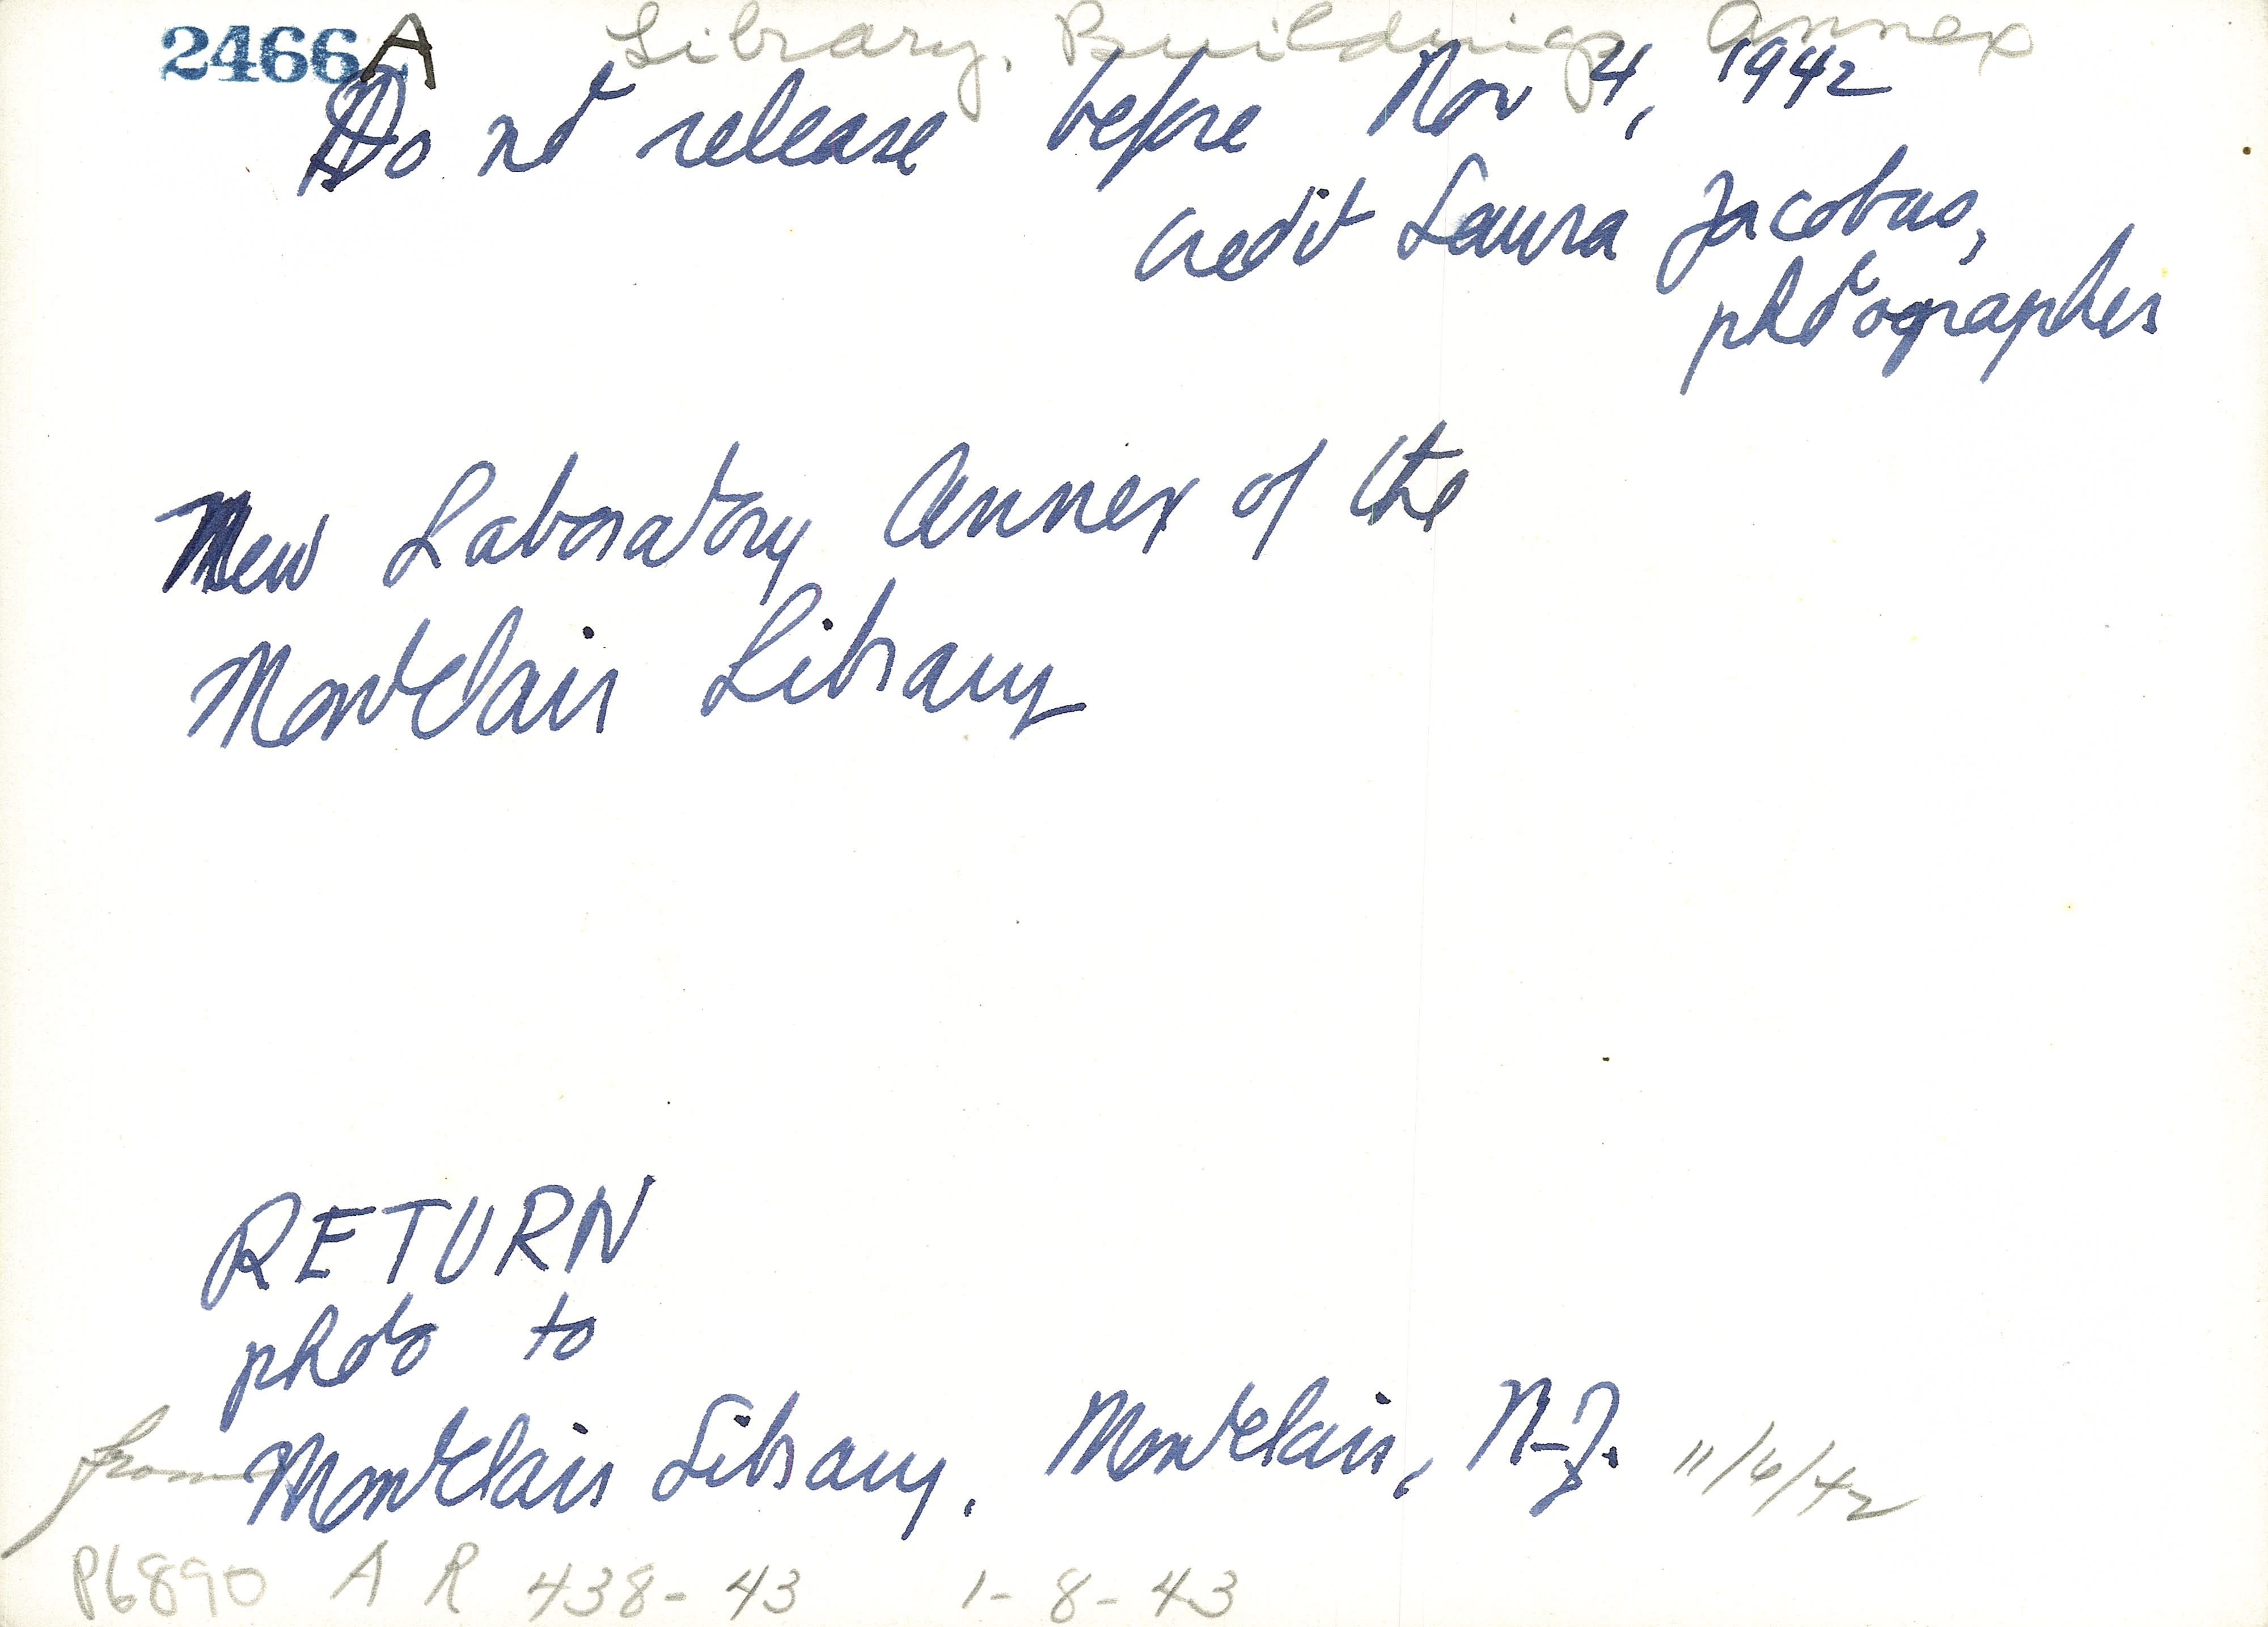 2466 A Library, Building, Annex
Do not release before Nov 4, 1942
credit Laura Jacobus,
photographer
New Laboratory Annex of the
Montclair Library
RETURN
photo to
from Montclair Library. Montclair, N-J. 11/6/42
P6890 A R 438-43 1-8-43